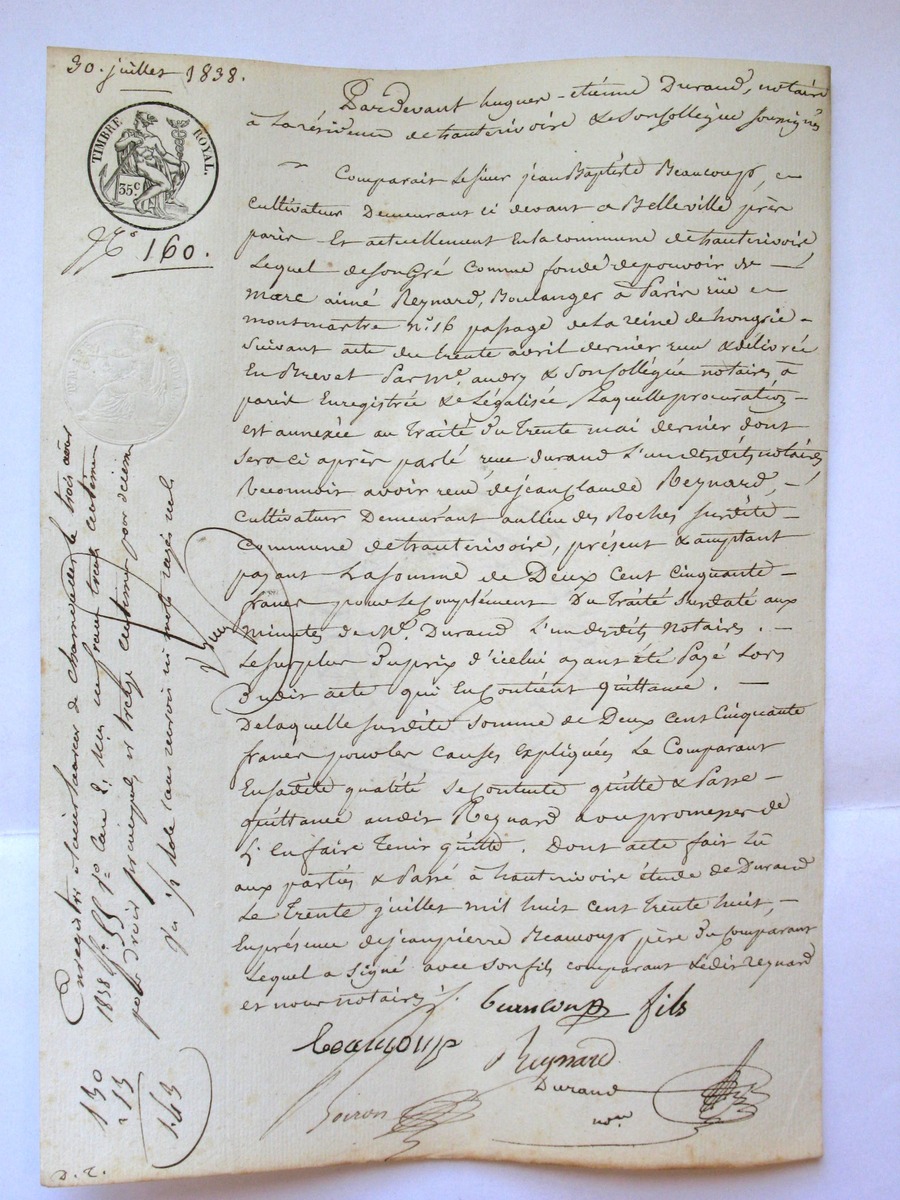 30. juillet 1838.
TIMBRE ROYAL.
35c
No 160.
Pardevant hugues-étienne Durand, notaire
à la résidence de hauterivoire & son Collègue soussignés
Comparait Le sieur jean Baptiste Beaucoup,
Cultivateur Demeurant ci devant a Belleville près
paris Et actuellement En la commune de hauterivoire
Lequel de son Gré Comme fondé de pouvoir de
marc aimé Reynard, Boulanger à Paris rüe
montmartre n.° 16 passage de La reine de hongrie
Suivant acte du trente avril dernier reçu & délivrée
En Brevet Par Me. andry & Son Collégue notaires a
paris Enregistrée & Légalisée, Laquelle procuration
est annexée au Traité Du Trente mai dernier dont
sera ci après parlé reçu durand L'un desdits notaires
Reconnoit avoir reçu de jean Claude Reynard,
Cultivateur Demeurant au lieu des Roches susdite
Commune de hauterivoire, présent & acceptant
payant La somme de Deux Cent Cinquante
francs pour Le Complément Du Traité susdaté aux
minutes de Me. Durand L'un desdits Notaires.
Le surplus Du prix d'icelui ayant été Payé Lors
Dudit acte qui En Contient quittance.
De laquelle susdite Somme de Deux Cent Cinquante
francs pour les Causes Expliquées Le Comparant
En sadite qualité Se Contente quitte & Passe
quittance audit Reynard avec promesse de
L'En faire Tenir quitte. Dont acte fait Lû
aux parties & Passé à hauterivoire étude de Durand
Le Trente juillet mil huit Cent Trente huit,
En présence de jean pierre Beaucoup père Du Comparant
Lequel a signé avec son fils comparant Ledit Reynard
et nous notaires
beaucoup fils
beaucoup
Reynard
Durand
nore
Boiron
Enregistré à Saint Laurent de chamousset le trois août
1838 fo. 55 ro Case 2, reçu un franc trente centimes
pour droit principal et treize centimes pour décime
130
13
143